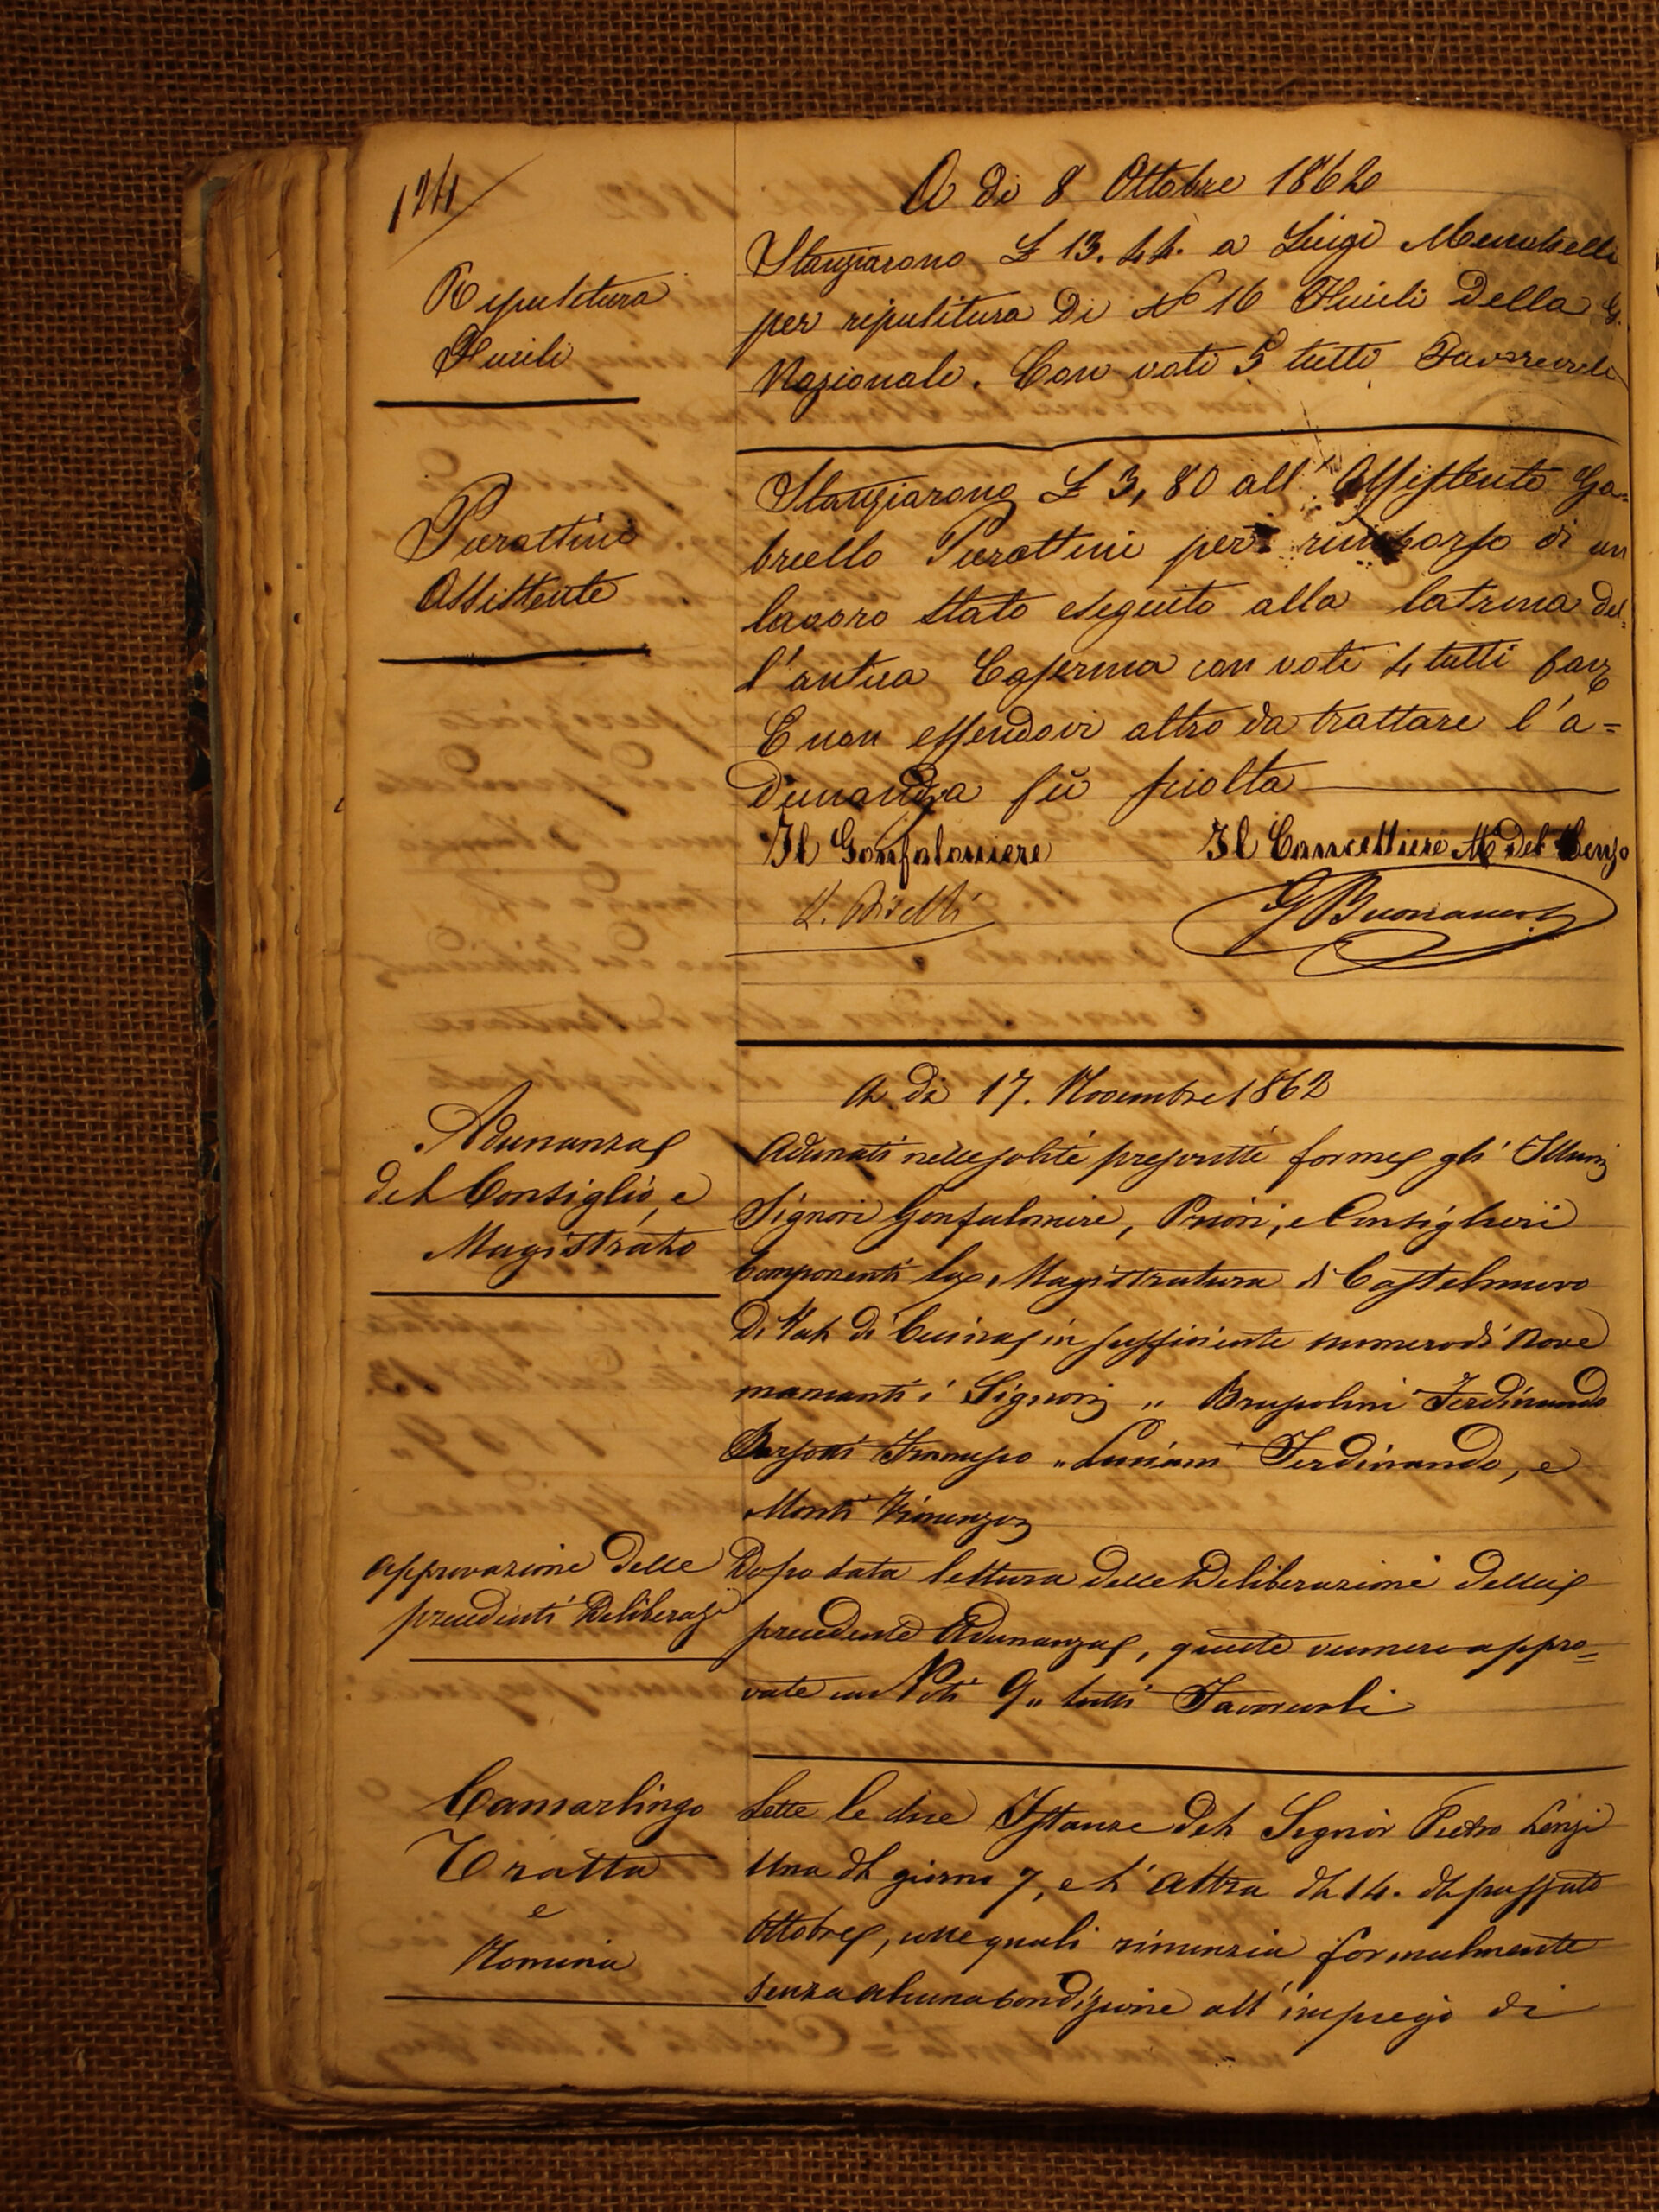 124
A di 8 Ottobre 1862
Ripulitura
Fucili
Stanziarono £ 13. 44. a Luigi
per ripulitura di N° 16 Fucili della G.
Nazionale. Con voti 5 tutti Favorevoli
Pierattini
Assistente
Stanziarono £ 3,80 all'Assistente Ga=
briello Pierattini per rimborso di un
lavoro stato eseguito alla latrina del=
l'antica Caserma con voti 4 tutti fav
E non essendovi altro da trattare l'a=
dunanza fù sciolta
Il Gonfaloniere
Il Cancelliere M del Censo
G Buonamici
A di 17. Novembre 1862
Adunanza
del Consiglio, e
Magistrato
Adunati nelle solite prescritte forme gli Illmi
Signori Gonfaloniere, Priori, e Consiglieri
Componenti la Magistratura di Castelnuovo
di Val di Cecina in sufficiente numero di Nove
mancanti i Signori „ Ferdinando
Francesco „ Ferdinando, e
Monti Vincenzo
Approvazione delle
precedenti Deliberazi
Dopo data lettura delle Deliberazioni della
precedente Adunanza, queste vennero appro=
vate con Voti 9 „ tutti Favorevoli
Camarlingo
Tratta
e
Nomina
Lette le due Istanze del Signor Pietro Lenzi
Una del giorno 7, e l'altra del 14. del passato
Ottobre, colle quali rinunzia formalmente
senza alcuna condizione all'impiego di